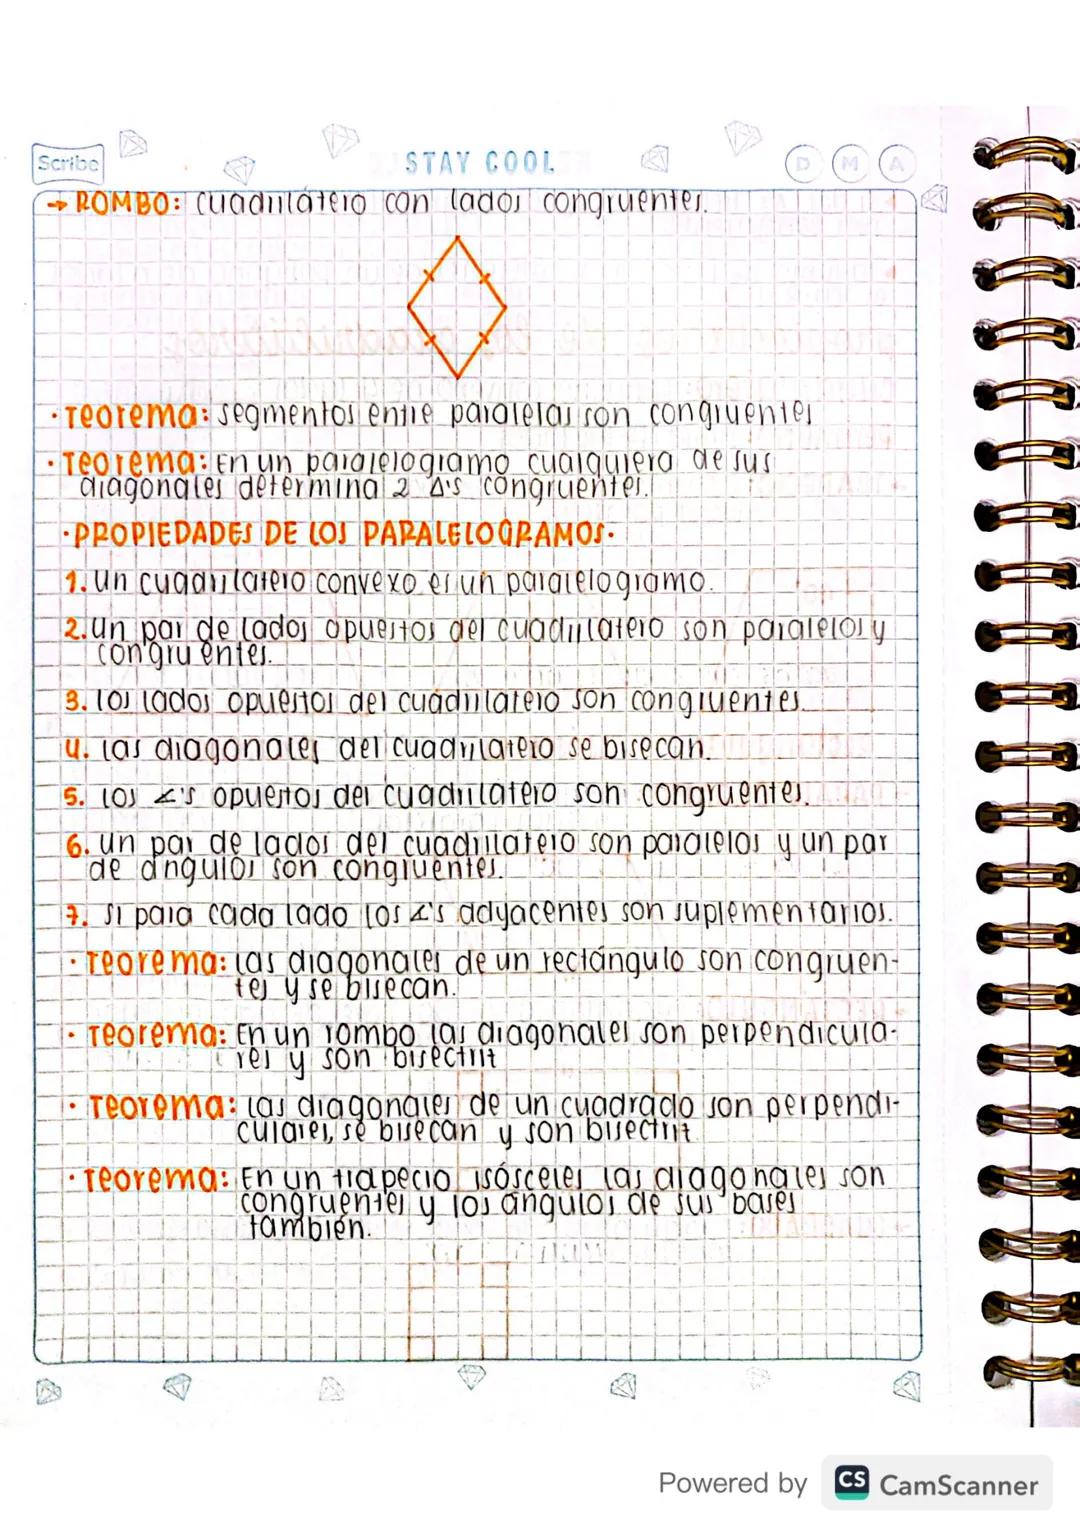 Scribe
STAY COOL
D M A
→ ROMBO: cuadrilátero con lados congruentes.
· Teorema: segmentos entre paralelas son congruentes
· Teorema: En un paralelogramo cualquiera de sus
diagonales determina 2 Δ's congruentes.
·PROPIEDADES DE LOS PARALELOGRAMOS·
1. Un cuadrilatero convexo es un paralelogramo.
2. Un par de lados opuestos del cuadrilatero son paralelos y
congruentes.
3. los lados opuestos del cuadrilatero son congruentes.
4. las diagonales del cuadrilatero se bisecan.
5. los ∠'s opuestos del cuadrilatero son congruentes.
6. un par de lados del cuadrilatero son paralelos y un par
de ángulos son congruentes.
7. si para cada lado los ∠'s adyacentes son suplementarios.
· Teorema: las diagonales de un rectángulo son congruen-
tes y se bisecan.
· Teorema: En un rombo las diagonales son perpendicula-
res y son bisectrit
· Teorema: las diagonales de un cuadrado son perpendi-
culares, se bisecan y son bisectrit
· Teorema: En un trapecio isósceles las diagonales son
congruentes y los ángulos de sus bases
también.
Powered by CS CamScanner